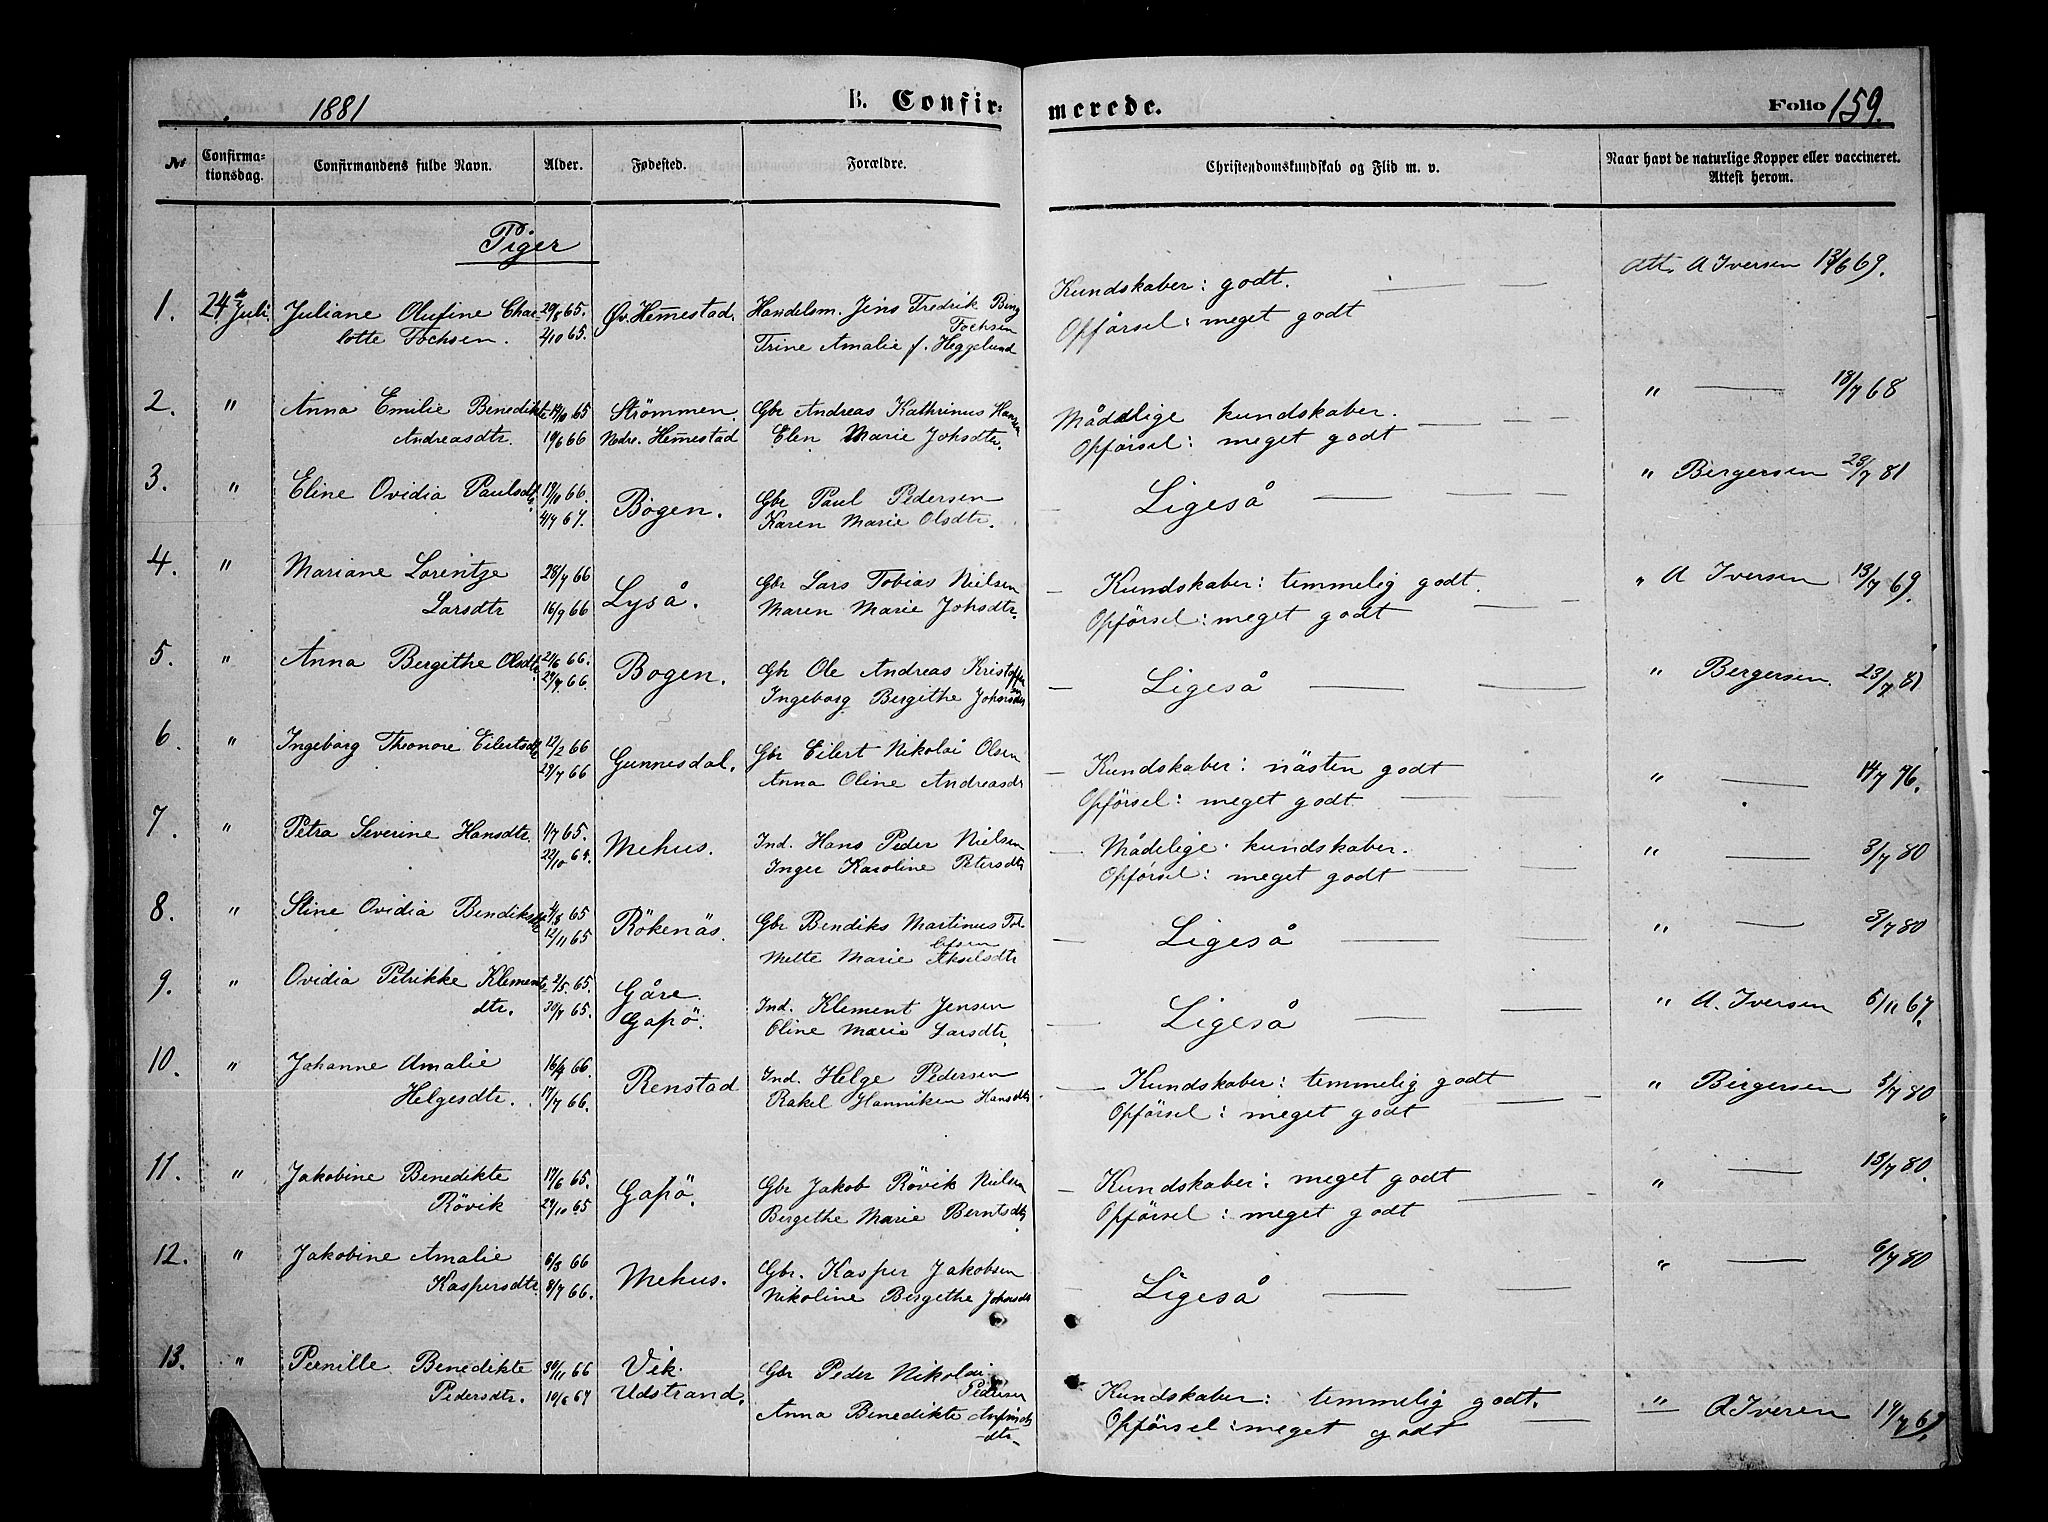 1881
B. Confirmerede.
Folio 159.
№ Confirmationsdag. Confirmandens fulde Navn. Alder. Fødested. Forældre. Christendomskundskab og Flid m. v. Naar havt de naturlige Kopper eller vaccineret. Attest herom.
Piger
1. 24de Juli. Juliane Olufine Char 29/8 65. Øv. Hemestad. Handelsm. Jens Fredrik Bing Kundskaber: godt. Att. A Iversen 13/6 69.
lotte Fochsen. 2/10 65. Fochsen Opførsel: meget godt
Trine Amalie f. Heggelund
2. " Anna Emilie Benedikte 65 Strömmen. Gbr Andreas Kathrinus Hansen Mådelige kundskaber. " — 18/7 68
Andreasdtr. 19/6 66 Nedre. Hemestad Elen Marie Johsdtr. Opførsel: meget godt
3. " Eline Ovidia Paulsdtr 19/11 66. Bogen. Gbr Paul Pedersen Ligeså " Bergersen 23/7 81
4/7 67. Karen Marie Olsdtr.
4. " Mariane Lorentze 28/7 66 Lyså. Gbr Lars Tobias Nielsen Kundskaber: temmelig godt. " A Iversen 13/7 69.
Larsdtr 16/9 66 Maren Marie Johsdtr. Opførsel: meget godt
5. " Anna Bergithe Olsdtr 21/6 66. Bogen. Gbr Ole Andreas Kristoffersen Ligeså " Bergersen. 23/7 81
29/7 66. Ingeborg Bergithe Johnsdtr
6. " Ingeborg Theonore Eilertsdtr 12/2 66 Gunnesdal. Gbr Eilert Nikolai Olsen Kundskaber: nästen godt " — 14/7 76.
29/7 66 Anna Oline Andreasdtr Opførsel: meget godt.
7. " Petra Severine Hansdtr. 1/7 65. Mehus. Ind. Hans Peder Nielsen Mådelige kundskaber. " — 3/7 80
22/10 64. Inger Karoline Petersdtr Opførsel: meget godt
8. " Stine Ovidia Bendiksdtr 4/8 65 Rökenäs. Gbr Bendiks Martinus Tol Ligeså " — 3/7 80
12/11 65 lefsen
Mette Marie Akselsdtr
9. " Ovidia Petrikke Klements 2/5 65. Gåre. Ind. Klement Jensen Ligeså " A. Iversen 5/11 67.
dtr. 30/7 65. Gapö. Oline Marie Larsdtr.
10. " Johanne Amalie 16/4 66. Renstad Ind. Helge Pedersen Kundskaber: temmelig godt " Bergersen 5/7 80
Helgesdtr. 17/7 66. Rakel Hanniken Hansdtr Opførsel: meget godt
11. " Jakobine Benedikte 17/6 65. Gapö. Gbr Jakob Rövik Nielsen Kundskaber: meget godt " — 13/7 80.
Rövik 29/10 65 Bergethe Marie Berntsdtr Opførsel: meget godt
12. " Jakobine Amalie 6/3 66 Mehus. Gbr. Kasper Jakobsen Ligeså " — 6/7 80
Kaspersdtr 8/7 66. Nikoline Bergethe Johnsdtr
13. " Pernille Benedikte 30/11 66 Vik. Gbr Peder Nikolai Kundskaber: temmelig godt. " A Iveren 19/7 69.
Pedersdtr. 10/6 67 Udstrand. Pedersen Opførsel: meget godt
Anna Benedikte Anfinds
dtr